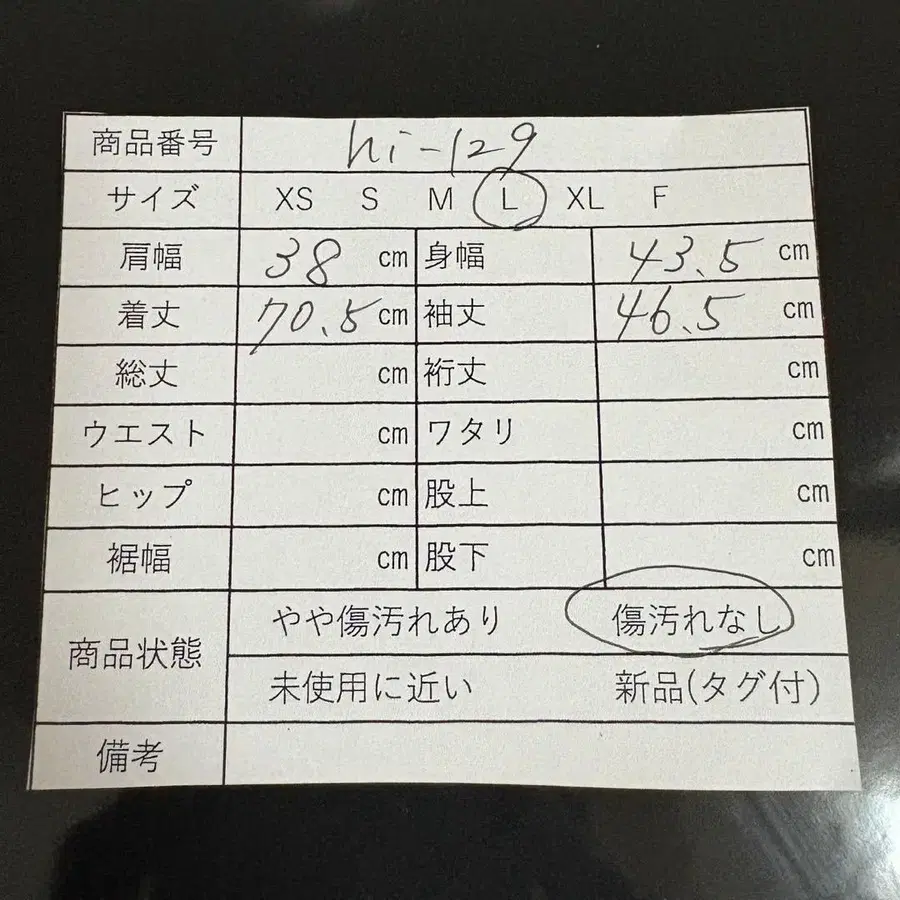 商品番号 hi-129
サイズ XS S M L XL F
肩幅 38 cm 身幅 43.5 cm
着丈 70.5 cm 袖丈 46.5 cm
総丈 cm 裄丈 cm
ウエスト cm ワタリ cm
ヒップ cm 股上 cm
裾幅 cm 股下 cm
商品状態 やや傷汚れあり 傷汚れなし
未使用に近い 新品(タグ付)
備考